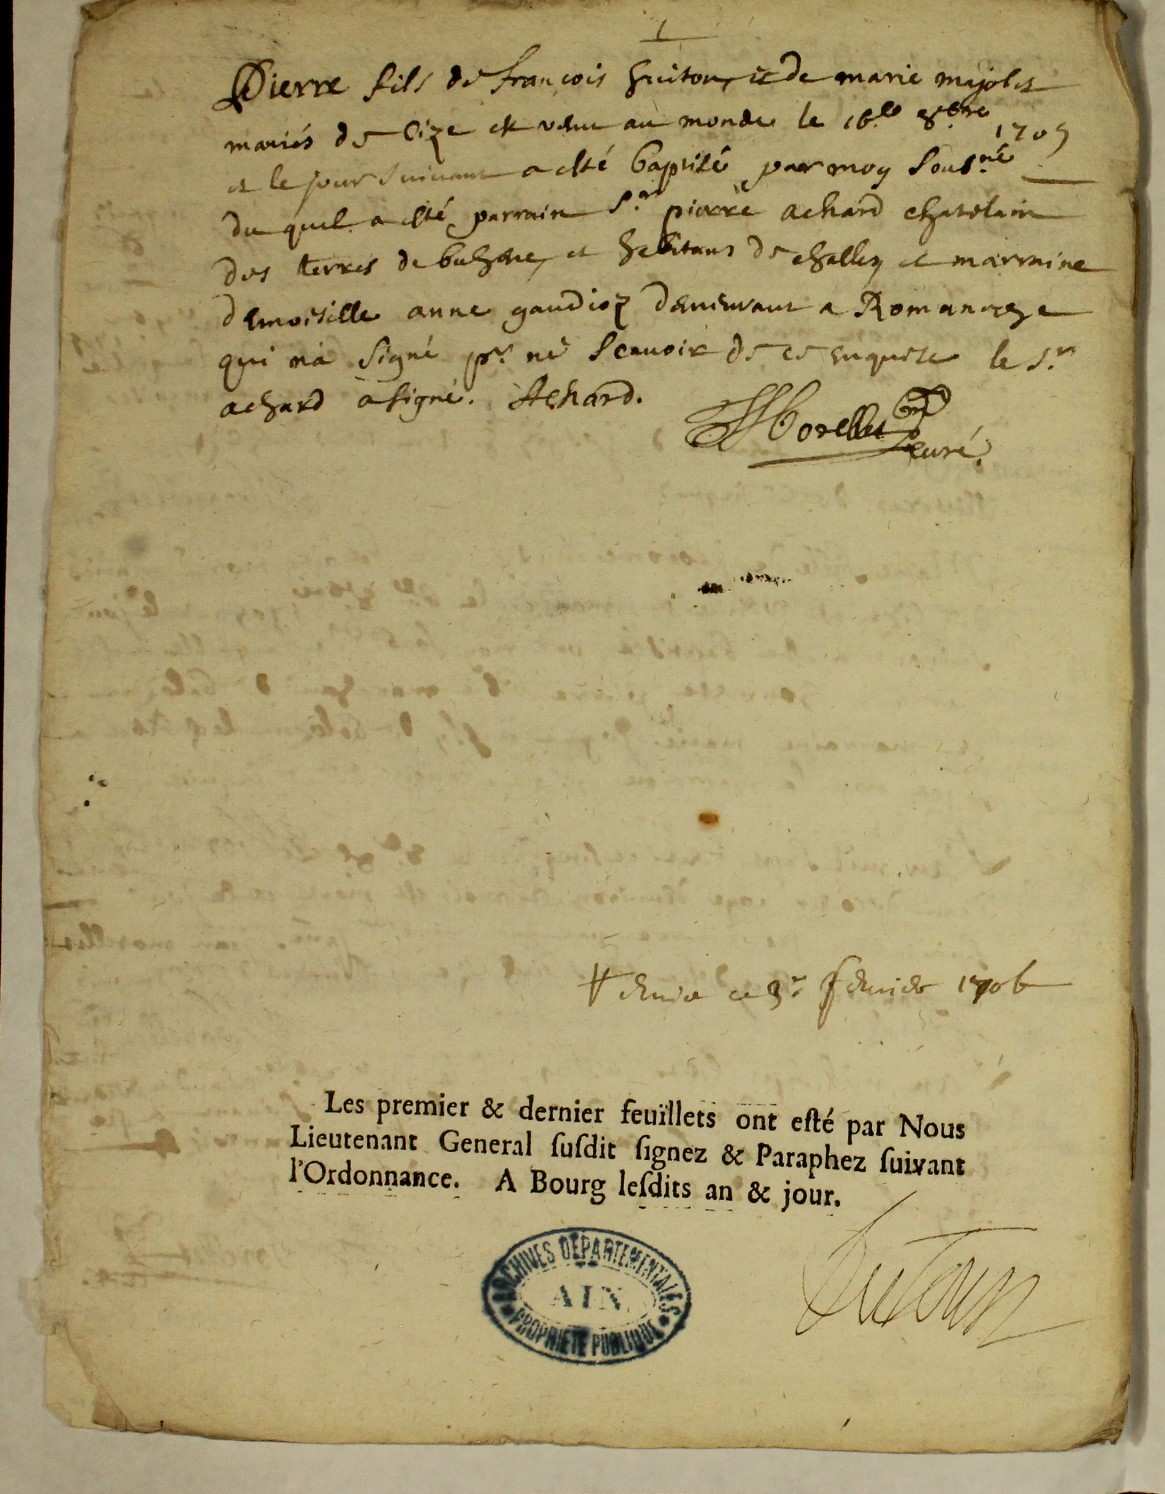 Pierre fils de françois huiton et de marie majolet
mariés de Cize est venu au monde le 16.e 8.bre 1705
et le jour suivant a esté baptisé par moy sous.né
du quel a esté parrain S.r pierre achard chatelain
des terres de buhene et habitant de challey et marraine
demoiselle anne gaudioz demeurant a Romaneche
qui na signé p.r ne scavoir de ce enquise le s.r
achard a signé. Achard.
Morellet
curé.
ce 3.e febvrier 1706
Les premier & dernier feuillets ont eſté par Nous
Lieutenant General ſuſdit ſignez & Paraphez ſuivant
l'Ordonnance. A Bourg leſdits an & jour.
ARCHIVES DÉPARTEMENTALES
AIN
PROPRIÉTÉ PUBLIQUE